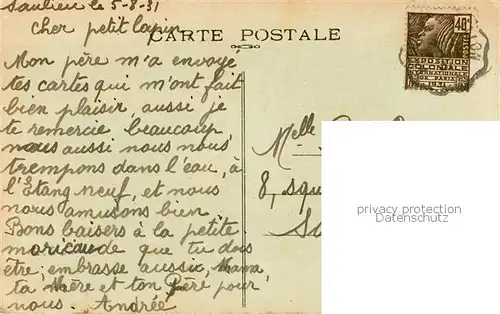 Saulieu le 5-8-31
Cher petit lapin
CARTE POSTALE
Mon père m'a envoyé
tes cartes qui m'ont fait
bien plaisir aussi je
te remercie beaucoup
nous aussi nous nous
trempons dans l'eau, à
l'Etang neuf, et nous
nous amusons bien
Bons baisers à la petite
moricaude que tu dois
être, embrasse aussi, Mama
ta Mère et ton Père pour
nous. Andrée
40c
EXPOSITION
COLONIALE
INTERNATIONALE
DE PARIS
1931
Melle
8, squ
privacy protection
Datenschutz